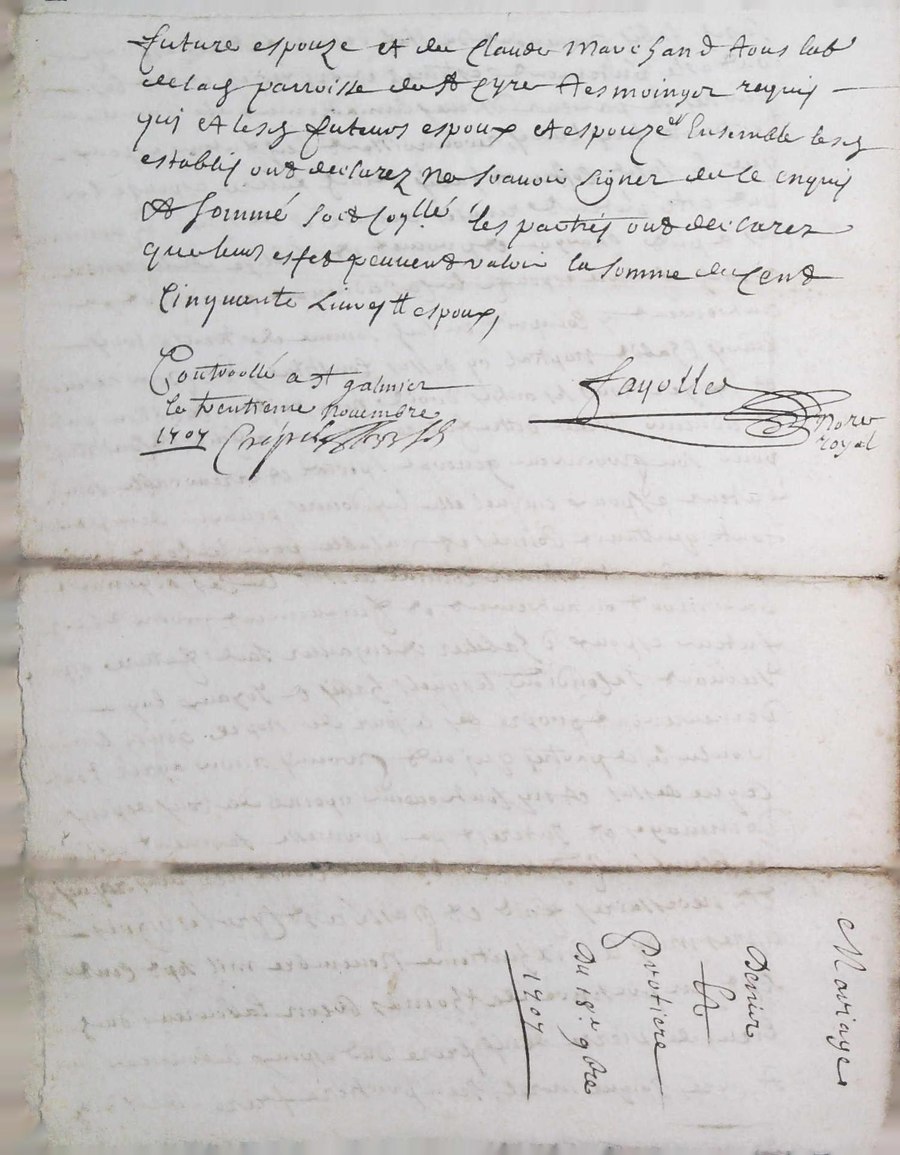 future espouze et de Claude Marchand tous lab
de lad parroisse de St Cyre tesmoingz requis
qui et lesd futurs espoux et espouze Ensemble lesd
establis ont declarez ne scavoir signer de ce enquis
et sommé soit les parties ont declarez
que leurs effet peuvent valoir la somme de Cent
Cinquante Livres espoux,
Controollé a St galmier
le trentieme novembre
1707
Fayolle
Nore
royal
Mariage
Denis
et
Protiere
Du 18e 9bre
1707